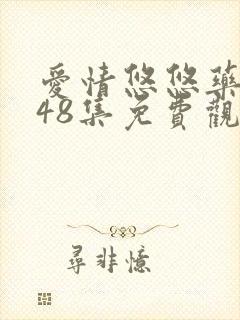 愛情悠悠藥
48集免費觀
尋非憶